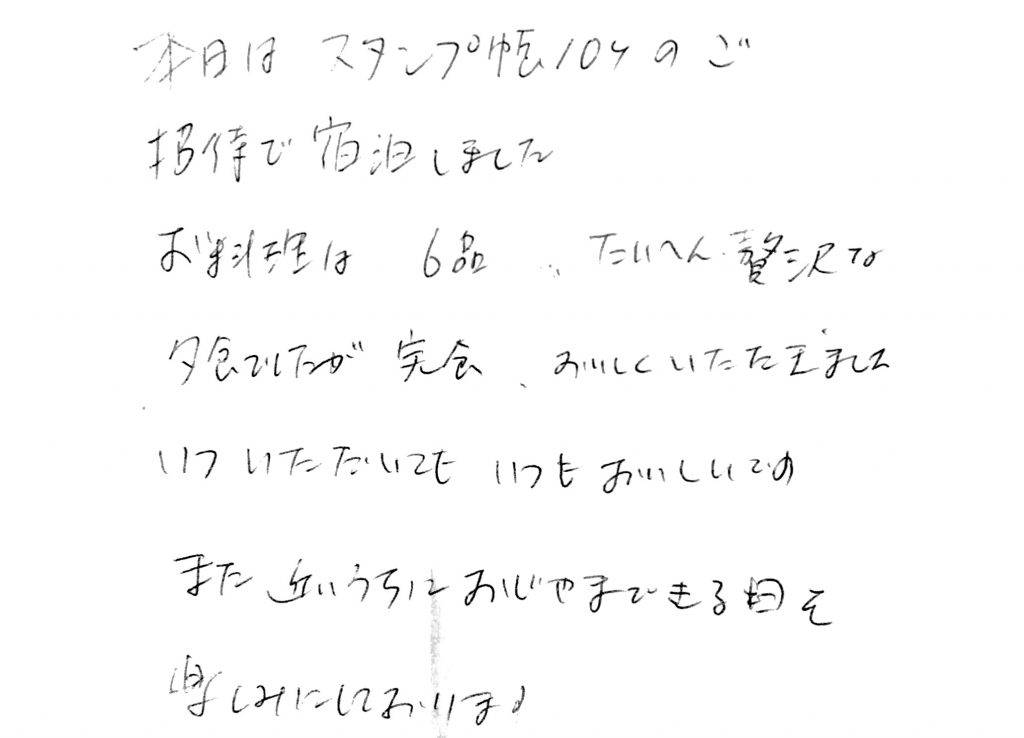 本日は スタンプ帳10ケのご
招待で宿泊しました
お料理は 6品、たいへん贅沢な
夕食でしたが 完食、おいしくいただきました
いついただいても いつもおいしいです
また近いうちにおじやまできる日を
楽しみにしております